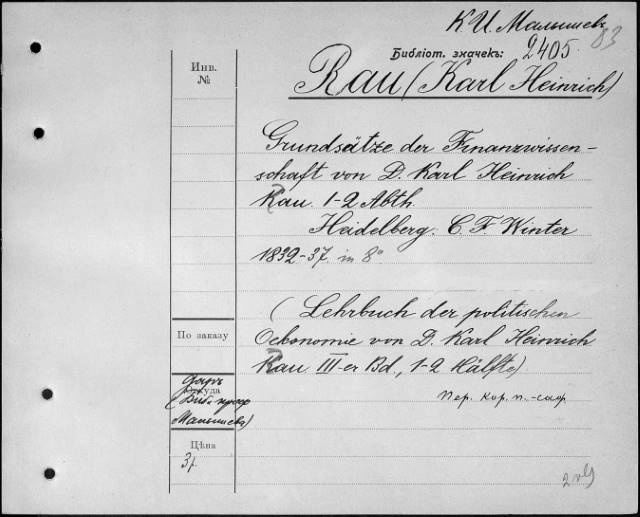 К. И. Малышевъ
83
Библіот. значекъ: 2405.
Rau (Karl Heinrich)
Инв.
№
Grundsätze der Finanzwissen-
schaft von D. Karl Heinrich
Rau. 1-2 Abth.
Heidelberg. C. F. Winter
1832-37. in 8°
(Lehrbuch der politischen
Oekonomie von D. Karl Heinrich
Rau III-er Bd., 1-2 Hälfte)
По заказу
Даръ
Откуда
(Библ. проф.
Малышева)
Пер. кор. п.-саф.
Цѣна
3р.
2 vol